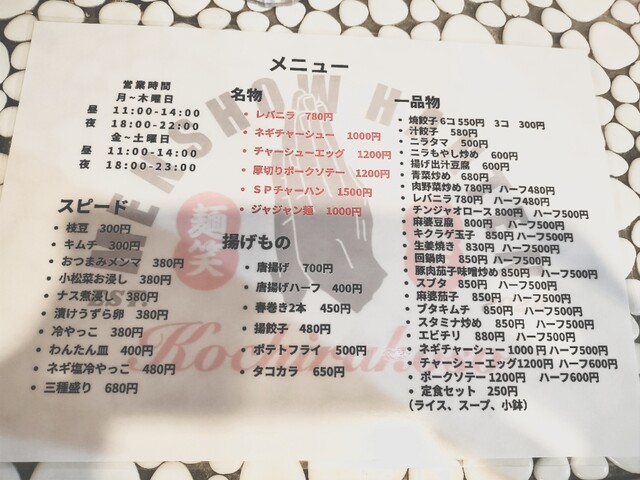 メニュー
営業時間
月~木曜日
昼 11:00-14:00
夜 18:00-22:00
金~土曜日
昼 11:00-14:00
夜 18:00-23:00
スピード
・枝豆 300円
・キムチ 300円
・おつまみメンマ 380円
・小松菜お浸し 380円
・ナス煮浸し 380円
・漬けうずら卵 380円
・冷やっこ 380円
・わんたん皿 400円
・ネギ塩冷やっこ 480円
・三種盛り 680円
名物
・レバニラ 780円
・ネギチャーシュー 1000円
・チャーシューエッグ 1200円
・厚切りポークソテー 1200円
・SPチャーハン 1500円
・ジャジャン麺 1000円
揚げもの
・唐揚げ 700円
・唐揚げハーフ 400円
・春巻き2本 450円
・揚餃子 480円
・ポテトフライ 500円
・タコカラ 650円
一品物
・焼餃子6コ550円 3コ 300円
・汁餃子 580円
・ニラタマ 500円
・ニラもやし炒め 600円
・揚げ出汁豆腐 600円
・青菜炒め 680円
・肉野菜炒め780円 ハーフ480円
・レバニラ780円 ハーフ480円
・チンジャオロース800円 ハーフ500円
・麻婆豆腐 800円 ハーフ500円
・キクラゲ玉子 850円ハーフ500円
・生姜焼き 830円 ハーフ500円
・回鍋肉 850円 ハーフ500円
・豚肉茄子味噌炒め850円 ハーフ500円
・スブタ 850円 ハーフ500円
・麻婆茄子 850円 ハーフ500円
・ブタキムチ 850円 ハーフ500円
・スタミナ炒め 850円 ハーフ500円
・エビチリ 880円 ハーフ500円
・ネギチャーシュー1000円ハーフ500円
・チャーシューエッグ1200円 ハーフ600円
・ポークソテー1200円 ハーフ600円
・定食セット 250円
(ライス、スープ、小鉢)
麺笑
EST.